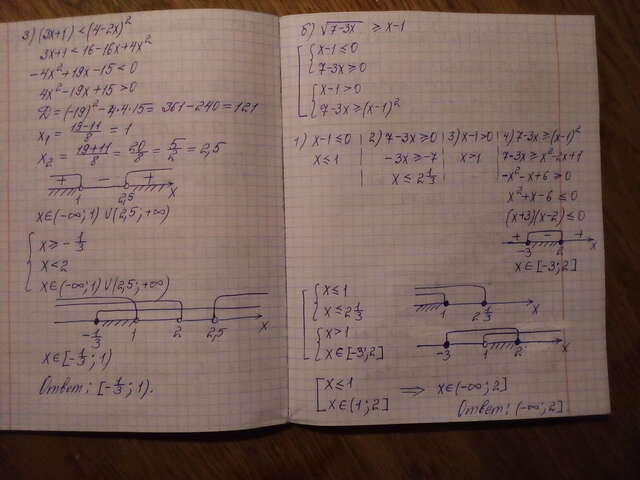 3) (3x+1) < (4-2x)²
3x+1 < 16-16x+4x²
-4x²+19x-15 < 0
4x²-19x+15 > 0
D = (-19)² - 4·4·15 = 361-240 = 121
x₁ = (19-11)/8 = 1
x₂ = (19+11)/8 = 20/8 = 5/2 = 2,5
+ − +
1 2,5 x
x∈(-∞; 1)∪(2,5; +∞)
{ x ≥ -1/3
x < 2
x∈(-∞; 1)∪(2,5; +∞)
-1/3 1 2 2,5 x
x∈[-1/3; 1)
Ответ: [-1/3; 1).
б) √(7-3x) ≥ x-1
[ { x-1 ≤ 0
7-3x ≥ 0
{ x-1 > 0
7-3x ≥ (x-1)²
1) x-1 ≤ 0
x ≤ 1
2) 7-3x ≥ 0
-3x ≥ -7
x ≤ 2 1/3
3) x-1 > 0
x > 1
4) 7-3x ≥ (x-1)²
7-3x ≥ x²-2x+1
-x²-x+6 ≥ 0
x²+x-6 ≤ 0
(x+3)(x-2) ≤ 0
+ − +
-3 2 x
x∈[-3; 2]
[ { x ≤ 1
x ≤ 2 1/3
1 2 1/3 x
{ x > 1
x∈[-3; 2]
-3 1 2 x
[ x ≤ 1
x∈(1; 2]
⇒ x∈(-∞; 2]
Ответ: (-∞; 2].